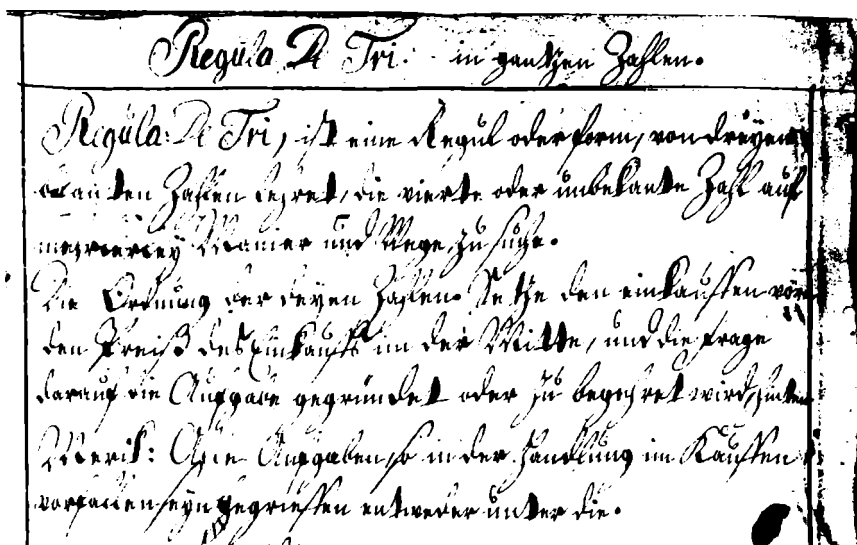 Regula De Tri: in gantzen Zahlen.
Regula De Tri, ist eine Regul oder form, von dreyen
bekanten Zahlen lehret, die vierte oder unbekante Zahl auf
mancherley Manier und Wege zu suche.
Die Ordnung der dreyen Zahlen. Setze den einkauffen vorn
den Preiß des Einkauffs in der Mitte, und die frage
darauf die Aufgabe gegründet oder zu begehret wird, hinten
Merck: Alle Aufgaben so in der Handlung im Kauffen
vorfallen seyn begrieffen entweder unter die.